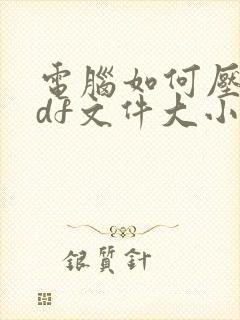 電腦如何壓
df文件大小
銀質針